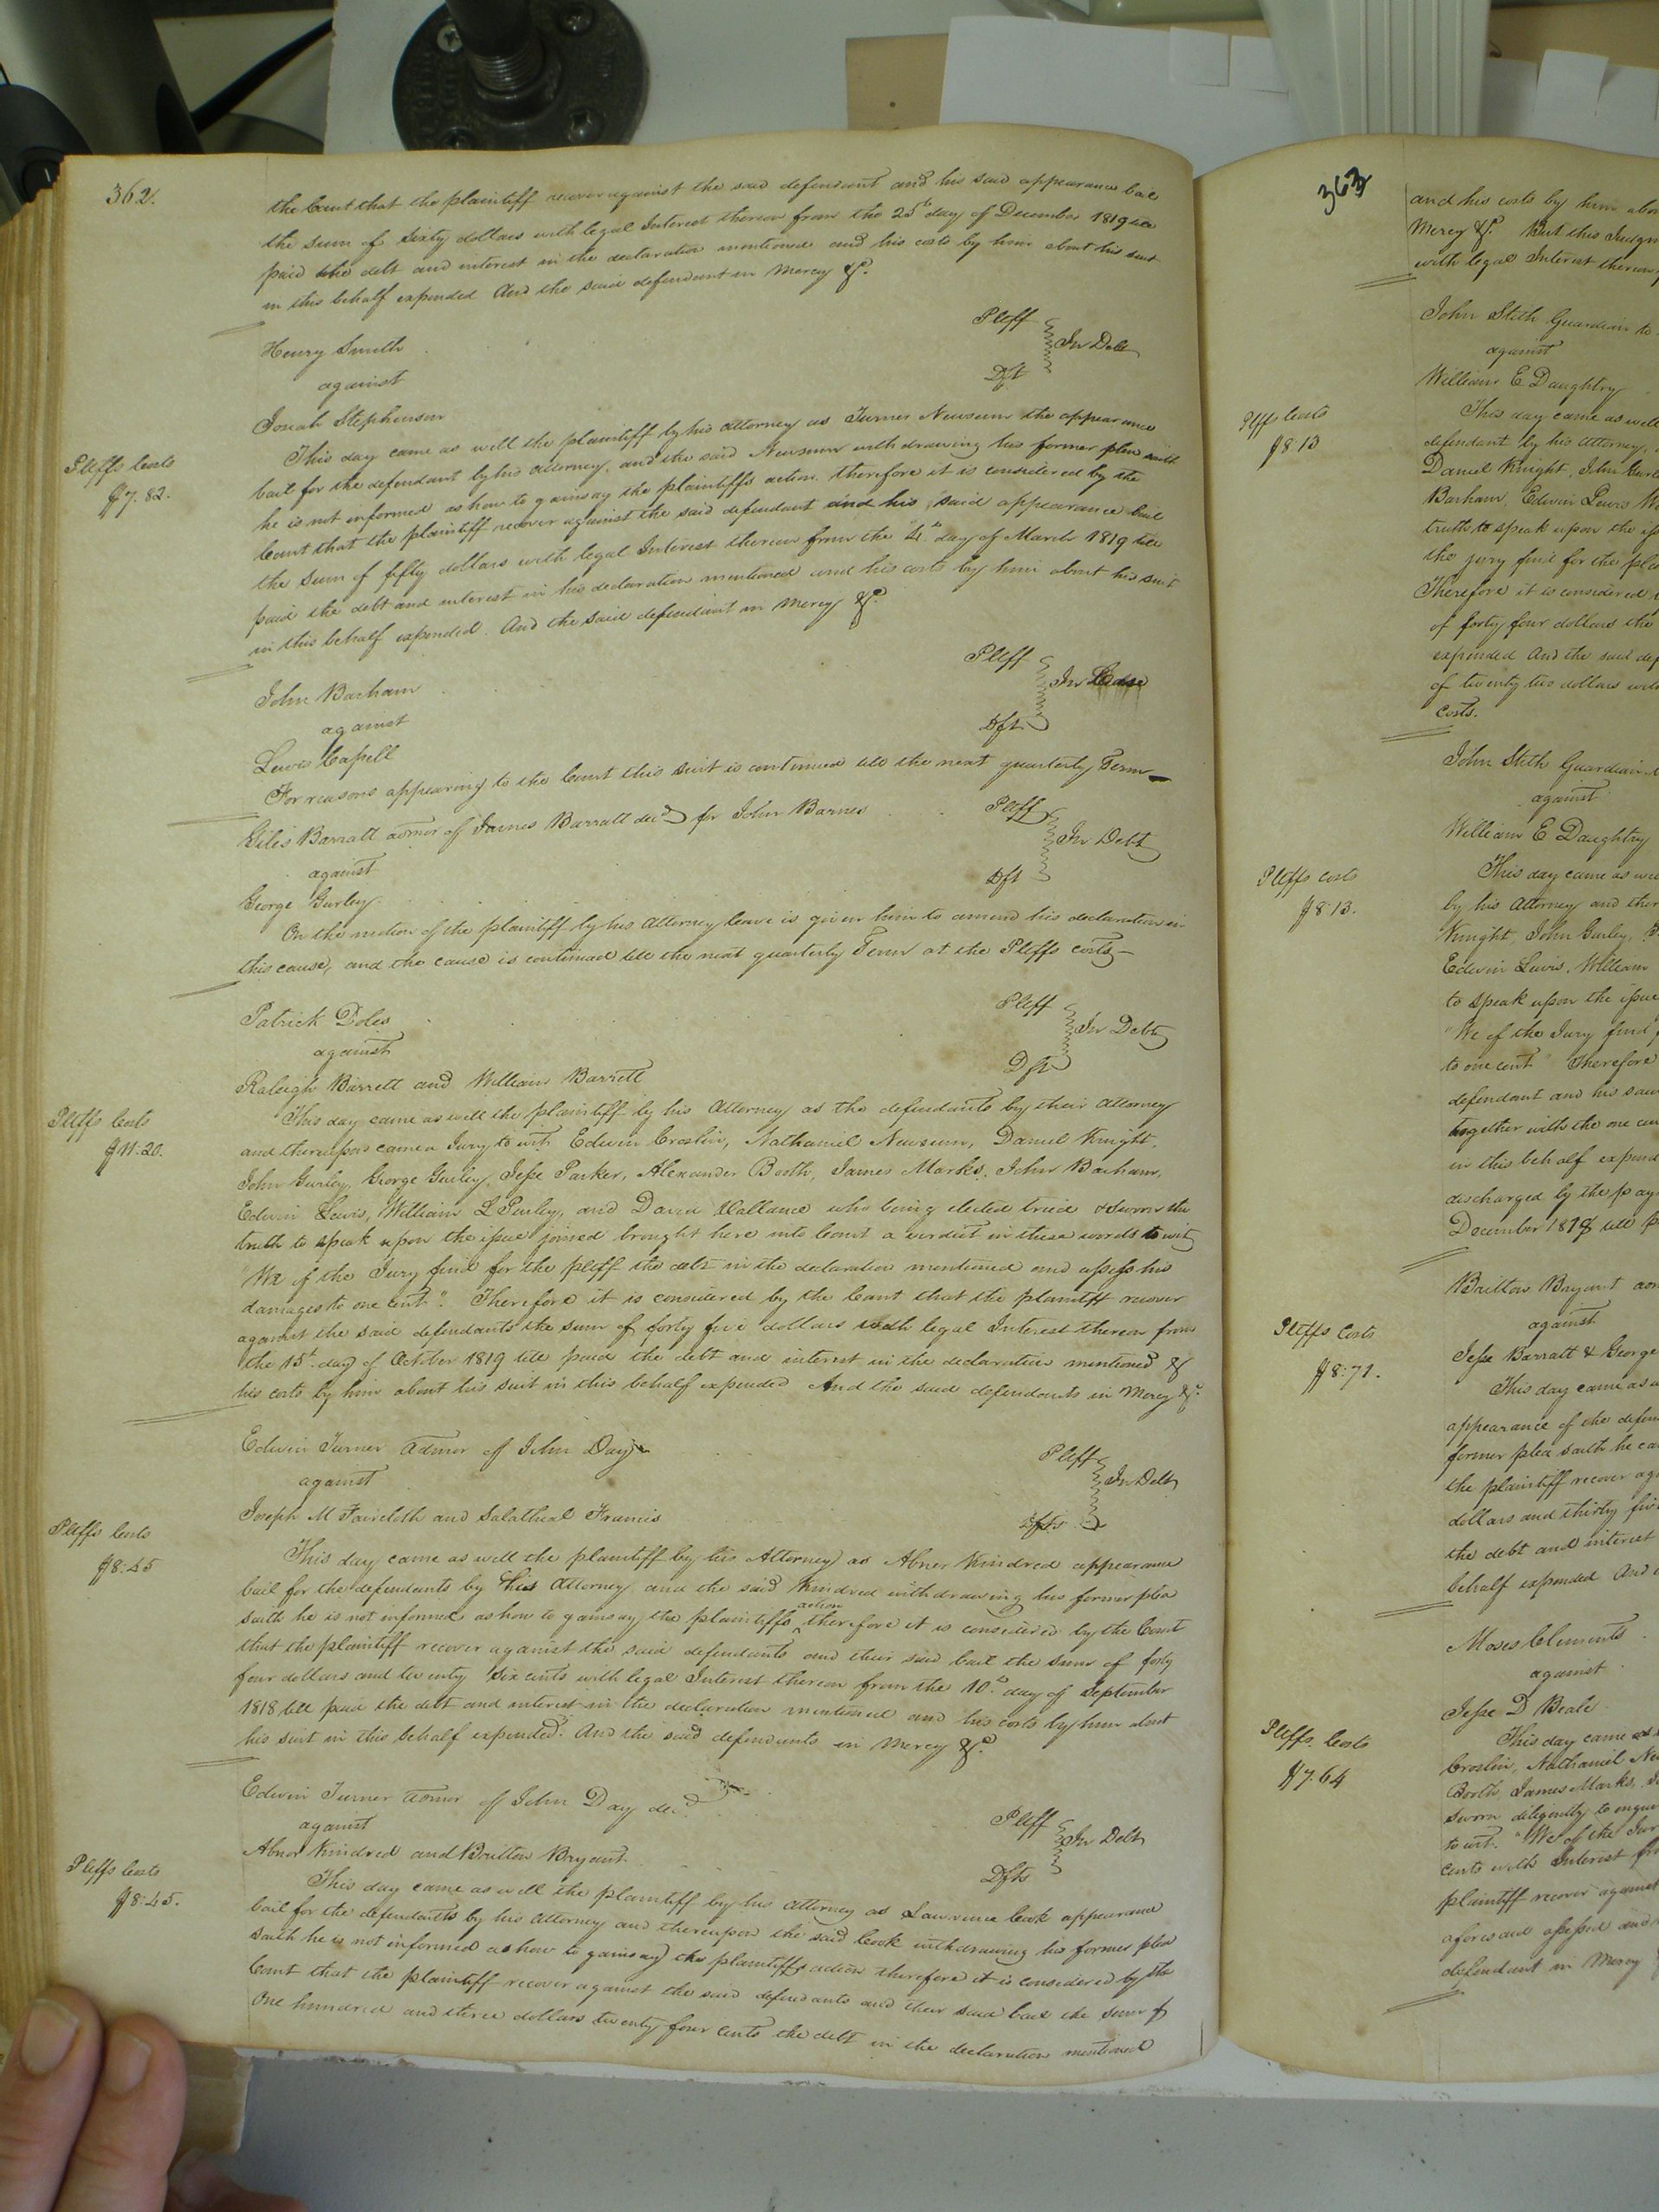 362.
the Court that the plaintiff recover against the said defendant and his said appearance bail
the sum of Sixty dollars with legal Interest thereon from the 25th day of December 1819 till
paid the debt and interest in the declaration mentioned and his costs by him about his suit
in this behalf expended And the said defendant in Mercy &c.
Henry Smith Pltff
against In Debt
Josiah Stephenson Dft
Pltffs Costs
$7.82.
This day came as well the plaintiff by his attorney as Turner Newsum the appearance
bail for the defendant by his attorney, and the said Newsum withdrawing his former plea saith
he is not informed as how to gainsay the plaintiffs action. therefore it is considered by the
Court that the plaintiff recover against the said defendant and his said appearance bail
the sum of fifty dollars with legal Interest thereon from the 4th day of March 1819 till
paid the debt and interest in his declaration mentioned and his costs by him about his suit
in this behalf expended. And the said defendant in Mercy &c.
John Barham Pltff
against In Case
Lewis Capell Dft
For reasons appearing to the Court this suit is continued till the next quarterly Term
Giles Barratt admor of James Barratt decd for John Barnes Pltff
against In Debt
George Gurley Dft
On the motion of the plaintiff by his Attorney leave is given him to amend his declaration in
this cause, and the cause is continued till the next quarterly Term at the Pltffs costs
Patrick Doles Pltff
against In Debt
Raleigh Barrett and William Barrett Dft
Pltffs Costs
$11.20.
This day came as well the plaintiff by his Attorney as the defendants by their Attorney
and thereupon came a Jury to wit Edwin Croslin, Nathaniel Newsum, Daniel Knight,
John Gurley, George Gurley, Jesse Parker, Alexander Booth, James Marks, John Barham,
Edwin Lewis, William L Purley, and David Vallance who being elected tried & sworn the
truth to speak upon the issue joined brought here into Court a verdict in these words to wit
"We of the Jury find for the pltff the debt in the declaration mentioned and assess his
damages to one cent". Therefore it is considered by the Court that the plaintiff recover
against the said defendants the sum of forty five dollars with legal Interest thereon from
the 15th day of October 1819 till paid the debt and interest in the declaration mentioned &
his costs by him about his suit in this behalf expended And the said defendants in Mercy &c.
Edwin Turner Admor of John Day Pltff
against In Debt
Joseph M Faircloth and Salathial Francis Dfts
Pltffs Costs
$8.45
This day came as well the plaintiff by his Attorney as Abner Kindred appearance
bail for the defendants by his Attorney and the said Kindred withdrawing his former plea
saith he is not informed as how to gainsay the plaintiffs action therefore it is considered by the Court
that the plaintiff recover against the said defendants and their said bail the sum of forty
four dollars and twenty six cents with legal Interest thereon from the 10th day of September
1818 till paid the debt and interest in the declaration mentioned and his costs by him about
his suit in this behalf expended. And the said defendants in Mercy &c.
Edwin Turner admor of John Day decd Pltff
against In Debt
Abner Kindred and Britton Bryant Dfts
Pltffs Costs
$8.45.
This day came as well the plaintiff by his Attorney as Lawrence Cook appearance
bail for the defendants by his Attorney and thereupon the said Cook withdrawing his former plea
saith he is not informed as how to gainsay the plaintiffs action therefore it is considered by the
Court that the plaintiff recover against the said defendants and their said bail the sum of
One hundred and three dollars twenty four cents the debt in the declaration mentioned
363
and his costs by him
Mercy &c. But this
with legal Interest thereon
John Stith Guardian to
against
William E Daughtry
Pltffs Costs
$8.13
This day came as well
defendant by his Attorney,
Daniel Knight, John
Barham, Edwin Lewis
truth to speak upon the
the jury find for the
Therefore it is considered
of forty four dollars the
expended And the said
of twenty two dollars
Costs.
John Stith Guardian
against
William E Daughtry
Pltffs costs
$8.13.
This day came as
by his Attorney and
Knight, John Gurley,
Edwin Lewis, William
to speak upon the issue
"We of the Jury find
to one cent" Therefore
defendant and his said
together with the one
in this behalf
discharged by the
December 1818 till
Britton Bryant
against
Jesse Barratt & George
Pltffs Costs
$8.71.
This day came as
appearance of the
former plea saith he
the plaintiff recover
dollars and thirty
the debt and interest
behalf expended And
Moses Clements
against
Jesse D Beale
Pltffs. Costs
$7.64
This day came as
Croslin, Nathaniel
Booth, James Marks,
Sworn diligently to
to wit. "We of the
cents with Interest
plaintiff recover against
aforesaid assessed and
defendant in Mercy